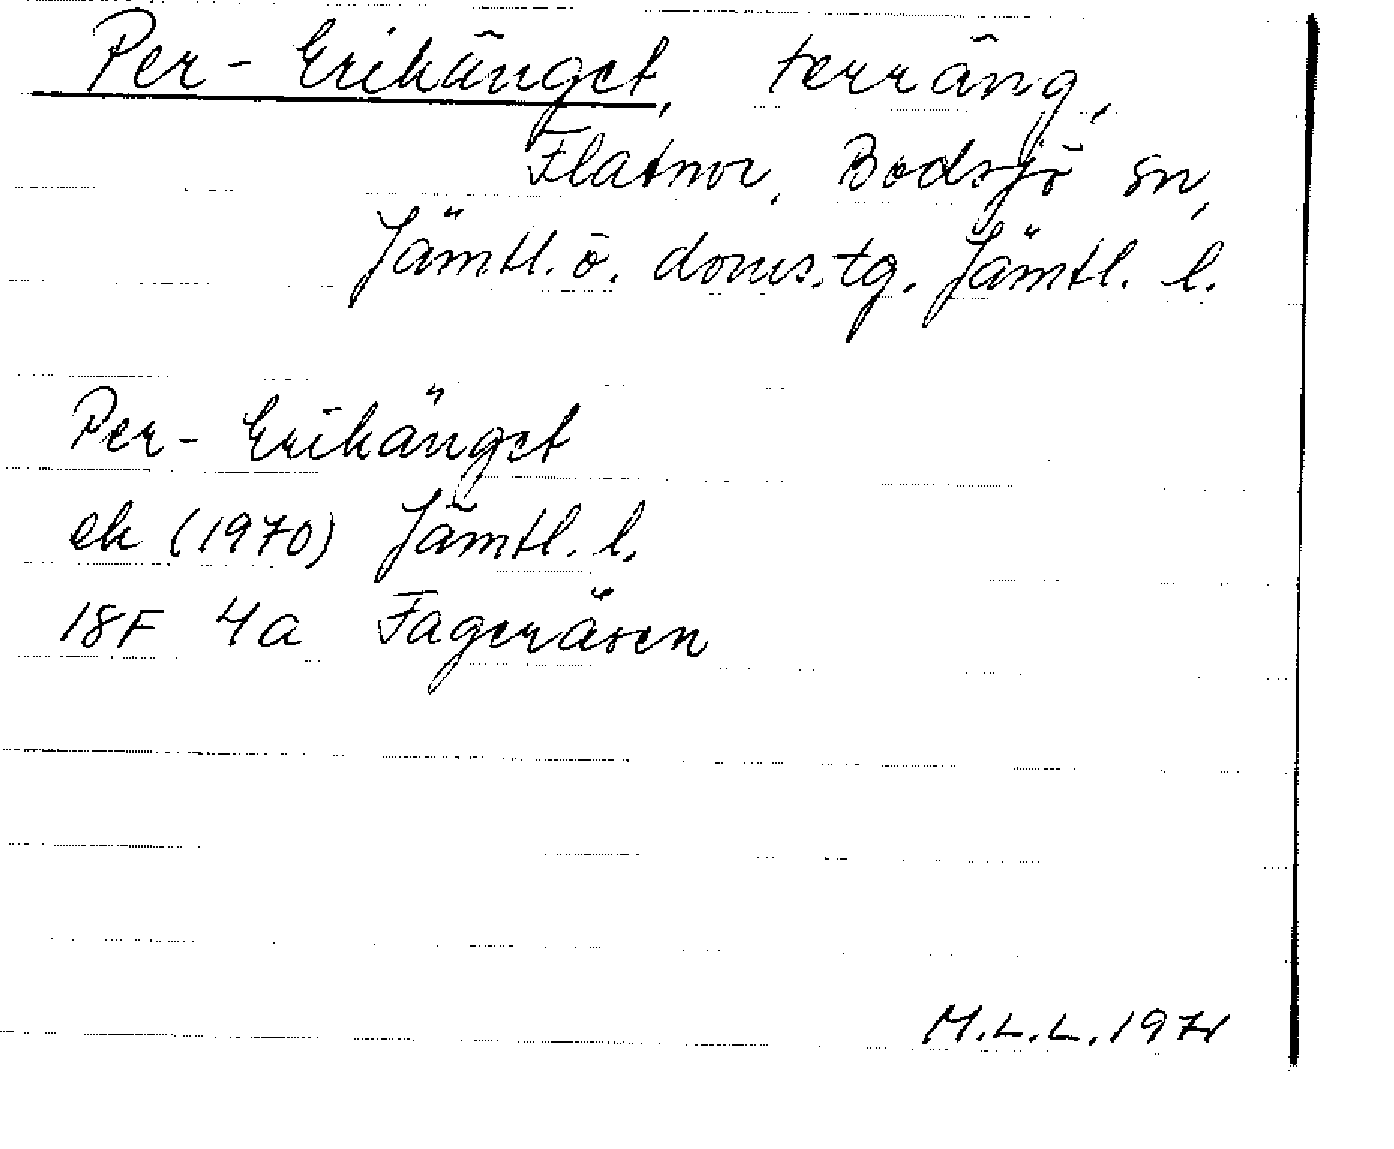 Per-Erikänget, terräng,
Flatnor, Bodsjö sn,
Jämtl. ö. doms.tg. Jämtl. l.
Per-Erikänget
ek (1970) Jämtl. l.
18F 4a Fageråsen
M.L.L. 1971